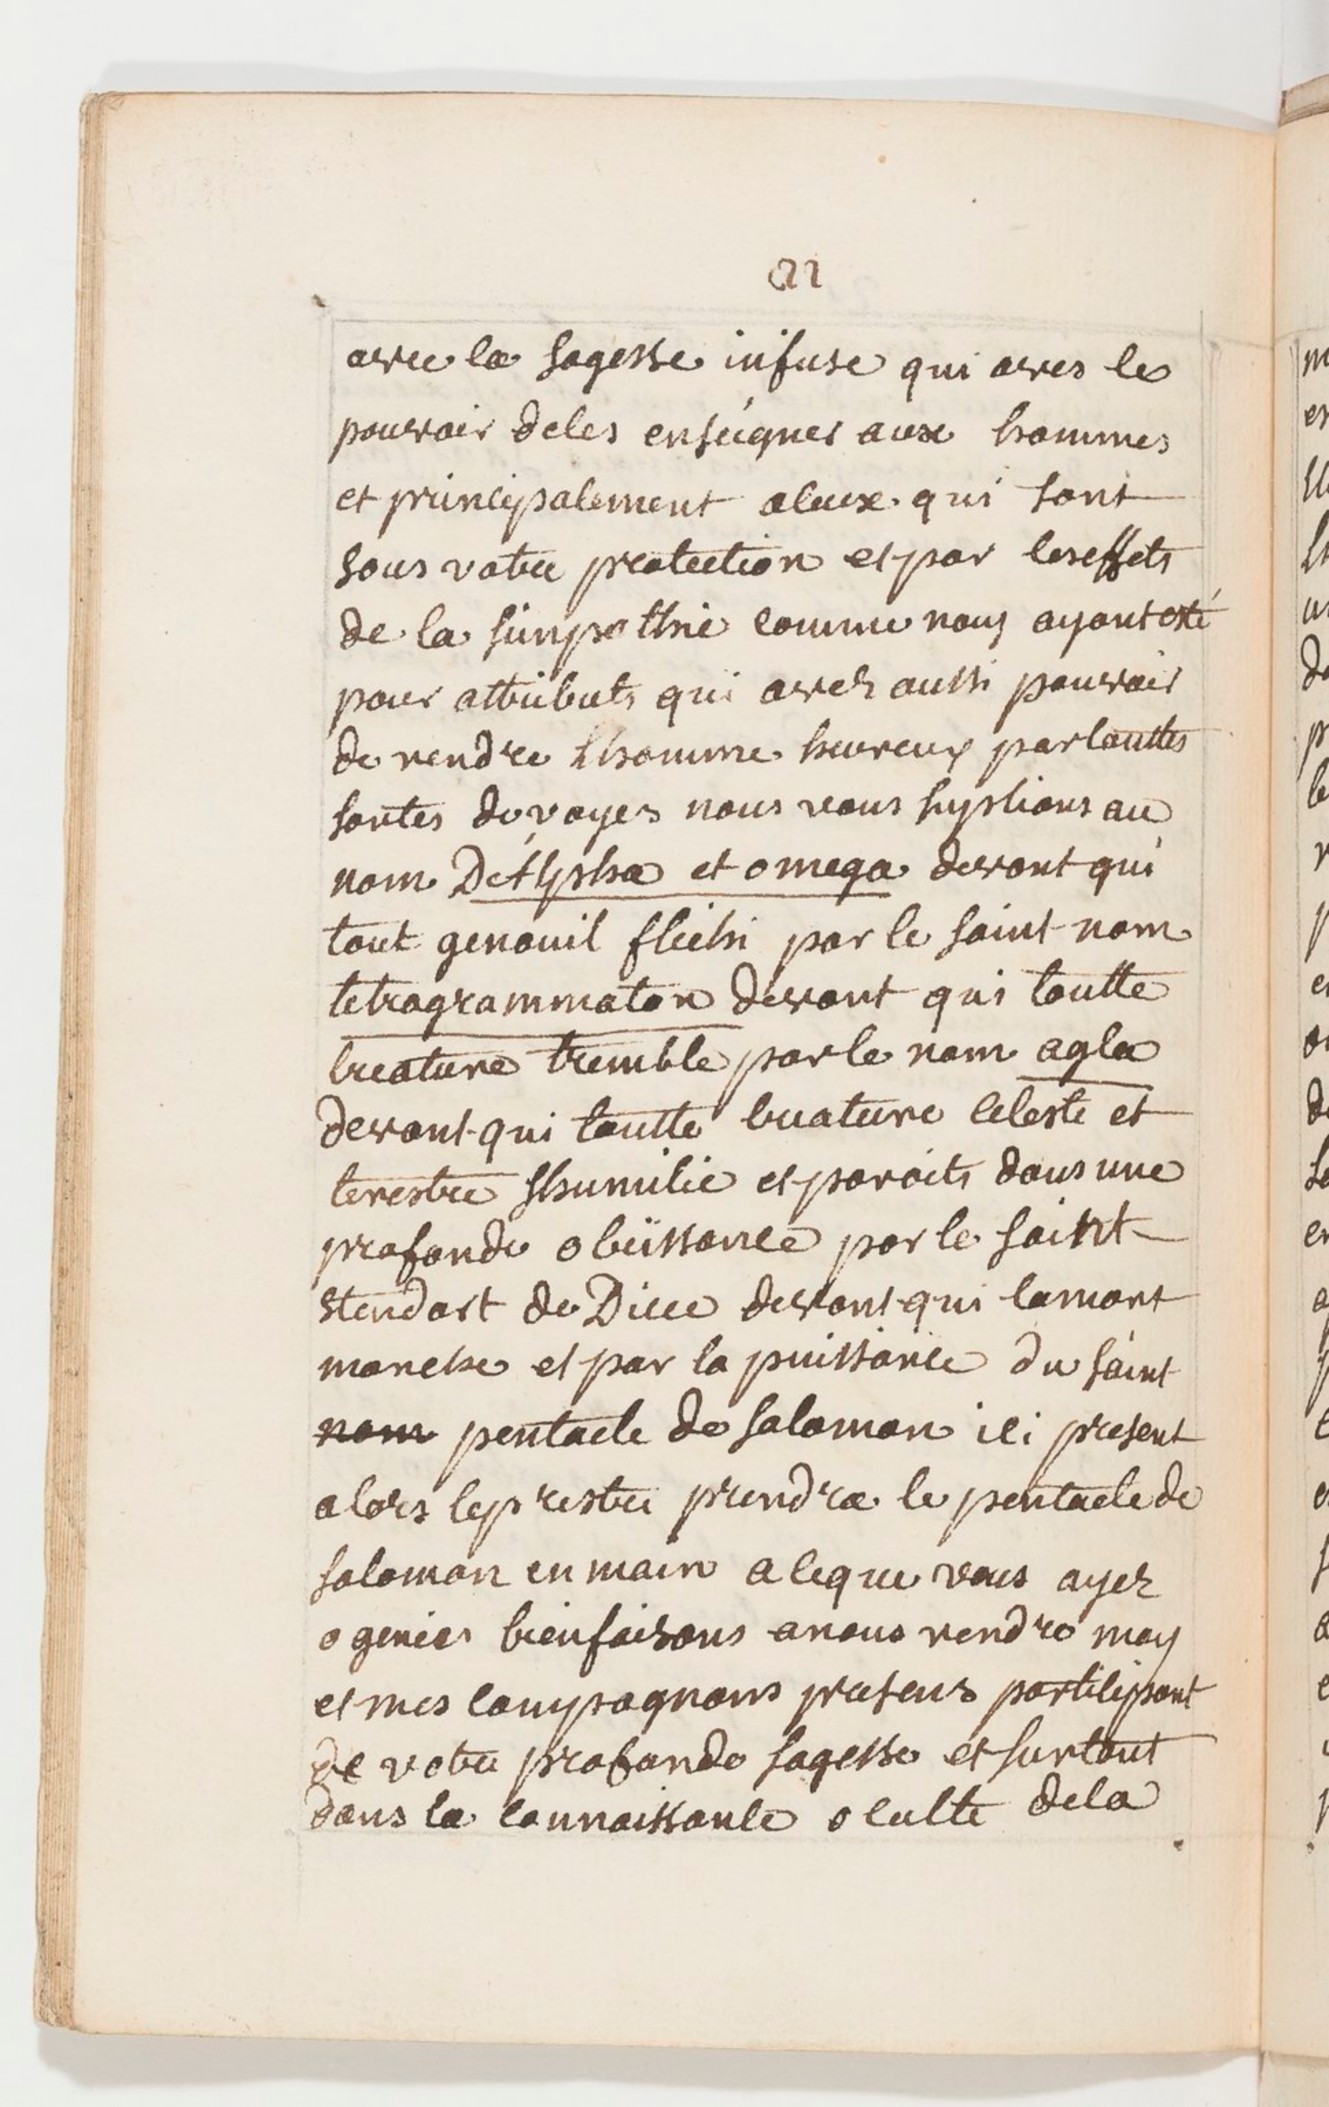 22
avec la sagesse infuse qui aves le
pouvoir deles enseigner aux hommes
et principalement aceux qui sont
sous votre protection et par les effets
de la simpathie comme nous ayant été
pour attributs qui avez aussi pouvoir
de rendre lhomme heureux par touttes
sortes de voyes nous vous suplions au
nom De Alpha et omega devant qui
tout genouil flechi par le saint nom
tetragrammaton devant qui toutte
creature tremble par le nom agla
devant qui toutte creature celeste et
terestre shumilie et paroits dans une
profonde obeïssance par le saint
stendart de Dieu devant qui la mort
marche et par la puissance du saint
nom pentacle de salomon ici present
alors leprestre prendra le pentacle de
salomon en main a ceque vous ayez
o genies bienfaisans anous rendre moy
et mes compagnons presens participant
de votre profonde sagesse et surtout
dans la connaissance oculte dela